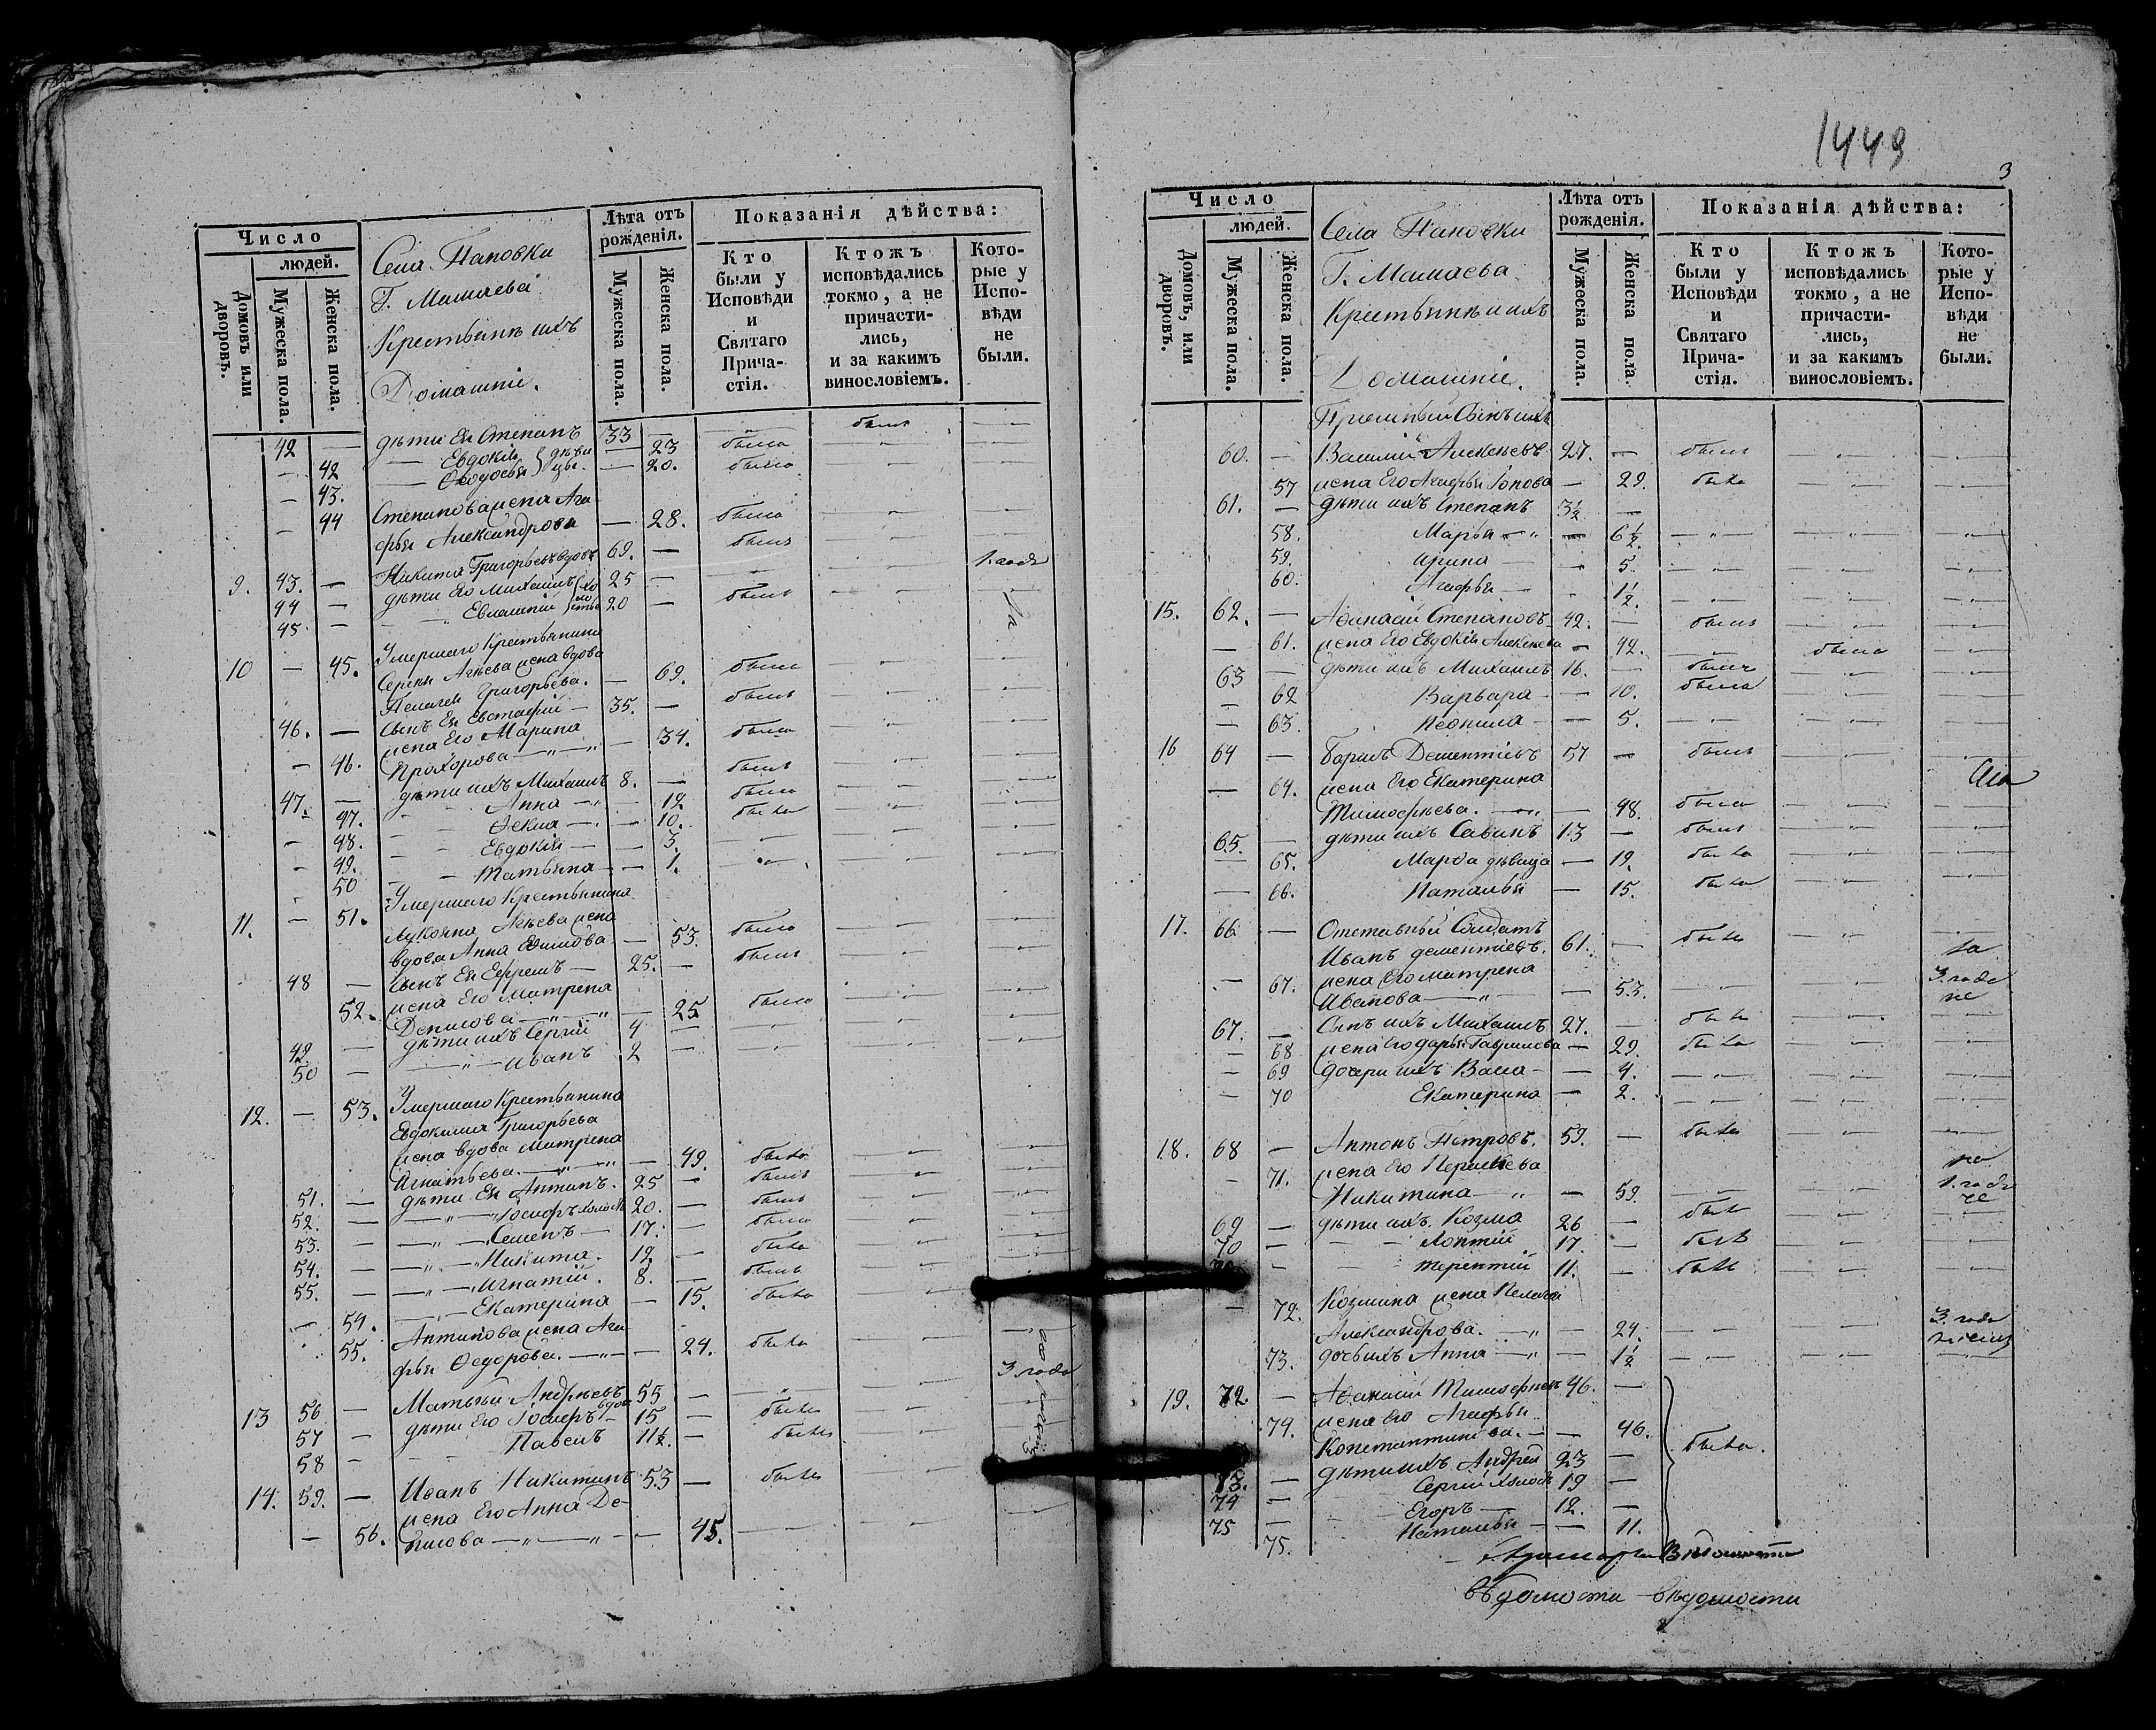 Число
людей.
Домовъ или дворовъ.
Мужеска пола.
Женска пола.
Села Пановки
Г. Мамаева
Крестьяне ихъ
Домашніи.
Лѣта отъ рожденія.
Мужеска пола.
Женска пола.
Показанія дѣйства:
Кто были у Исповѣди и Святаго Прича-стія.
Ктожъ исповѣдались токмо, а не причасти-лись, и за какимъ винословіемъ.
Кото-рые у Испо-вѣди не были.
42 — дѣти Ея Степанъ 33 — былъ
— 42 Евдокія дѣви 23 была
— 43. Ѳеодосья цы. — 20. была
— 44 Степанова жена Ага
фья Александрова — 28. была
9. 43. — Никита Григорьевъ вдовъ 69. — былъ
44 — дѣти Его Михаилъ хо 25 —
45 — Евлампій 20 — былъ
10 — 45. Умершаго Крестьянина
Сергѣя жена вдова
Пелагея Григорьева. — 69. была
46. — сынъ Ея Евстафій — 35. — былъ
— 46. жена Его Марина
Прохорова — 34. была
47. — дѣти ихъ Михаилъ 8. — былъ
— 47. Анна — 12 была
— 48. Ѳекла — 10. была
— 49. Евдокія — 3.
50 Татьяна — 1.
11. — 51. Умершаго Крестьянина
жена
вдова Анна — 53. была
48 — сынъ Ея Ефремъ — 25. — былъ
52. жена Его Матрена
Данилова — 25 была
49. — дѣти ихъ Сергій 4 —
50 — Иванъ 2 —
12. — 53. Умершаго Крестьянина
Евдокима Григорьева
жена вдова Матрена
Игнатьева. — 49. была
51. — дѣти Ея Антипъ. 25 — былъ
52. — Іосифъ холостъ 20. — былъ
53. — Семенъ — 17. — былъ
54. — Никита. 12. —
55. — Игнатій. 8. — былъ
— 54. Екатерина — 15. была
55. Антипова жена Ага
фья Ѳедорова. — 24. была
13 56 — Матвѣй Андреевъ вдовъ 55 — 3. года
57 — дѣти Его Іосифъ — 15 —
58 — Павелъ 11½. —
14. 59. — Иванъ Никитинъ 53 —
— 56. жена Его Анна Да-
нилова — 45.
1449
3
Число
людей.
Домовъ, или дворовъ.
Мужеска пола.
Женска пола.
Села Пановки
Г. Мамаева
Крестьяне и ихъ
Домашніи.
Лѣта отъ рожденія.
Мужеска пола.
Женска пола.
Показанія дѣйства:
Кто были у Исповѣди и Святаго Прича-стія.
Ктожъ исповѣдались токмо, а не причасти-лись, и за какимъ винословіемъ.
Кото-рые у Испо-вѣди не были.
Пріемный Сынъ ихъ
60. — Василій Алексѣевъ 27. — былъ
57 жена Его Агафья — 29. была
61. — дѣти ихъ Степанъ 3½ —
58. Марья — 6½.
59. Арина — 5.
60. Агафья — 1½.
15. 62. — Аѳанасій Степановъ 42. — былъ
— 61. жена Его Евдокія Алексѣева — 42. — была
63 — дѣти ихъ Михаилъ 16. — былъ
— 62 Варвара — 10. была
— 63. Неонила — 5.
16 64 — Борисъ Дементіевъ 57 — былъ
— 64. жена Его Екатерина
Тимофѣева. — 48. была
65. — дѣти ихъ Савинъ 13 — былъ
— 65. Марѳа дѣвица — 19. была
— 66. Наталья — 15. была
17. 66 — Отставный Солдатъ
Иванъ Дементіевъ. 61. —
— 67. жена Его Матрена
Иванова — 53. 3. года
не
67. — Сынъ ихъ Михаилъ 27. —
— 68 жена Его Дарья — 29. была
— 69 дочери ихъ Васса — 4.
— 70 Екатерина — 2.
18. 68 — Антонъ Петровъ. 59. —
— 71. жена Его
Никитина — 59. 1. годъ
69 — дѣти ихъ. Козма 26 —
70 — Леонтій 17. —
Терентій 11. —
— 72. Козмина жена Пелагея
Александрова. — 24. 3. года
73. дочь ихъ Анна — 1½
19. 72. — Аѳанасій Тимофѣевъ 46. —
74. жена Его Агафья
Константинова. — 46.
была.
73. — дѣти ихъ Андрей 23 —
74 — Сергій холостъ 19 —
75 — Егоръ — 12. —
75. Наталья — 11.
вѣдомости вѣдомости